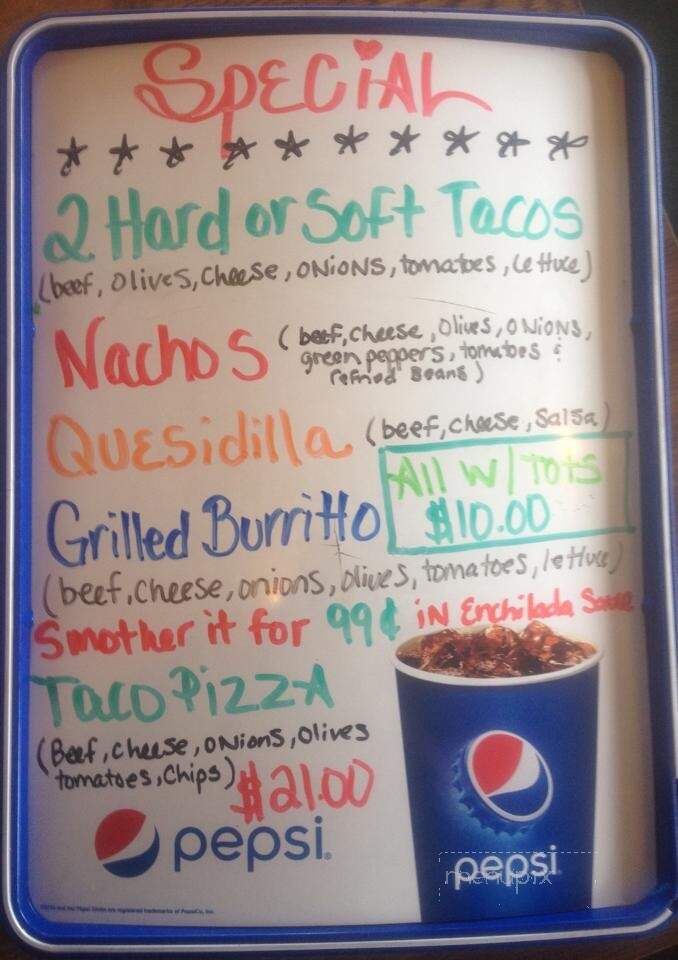 SPECiAL
2 Hard or Soft Tacos
(beef, Olives, Cheese, ONiONS, tomatoes, lettuce)
Nachos (beef, cheese, Olives, ONiONS,
green peppers, tomatoes &
refried Beans)
QUESidilla (beef, cheese, Salsa)
All w/ Tots
$10.00
Grilled Burritto
(beef, cheese, onions, olives, tomatoes, lettuce)
Smother it for 99¢ iN Enchilada Sauce
Taco PizzA
(Beef, cheese, ONions, Olives
tomatoes, Chips) $21.00
pepsi.
pepsi
menupix